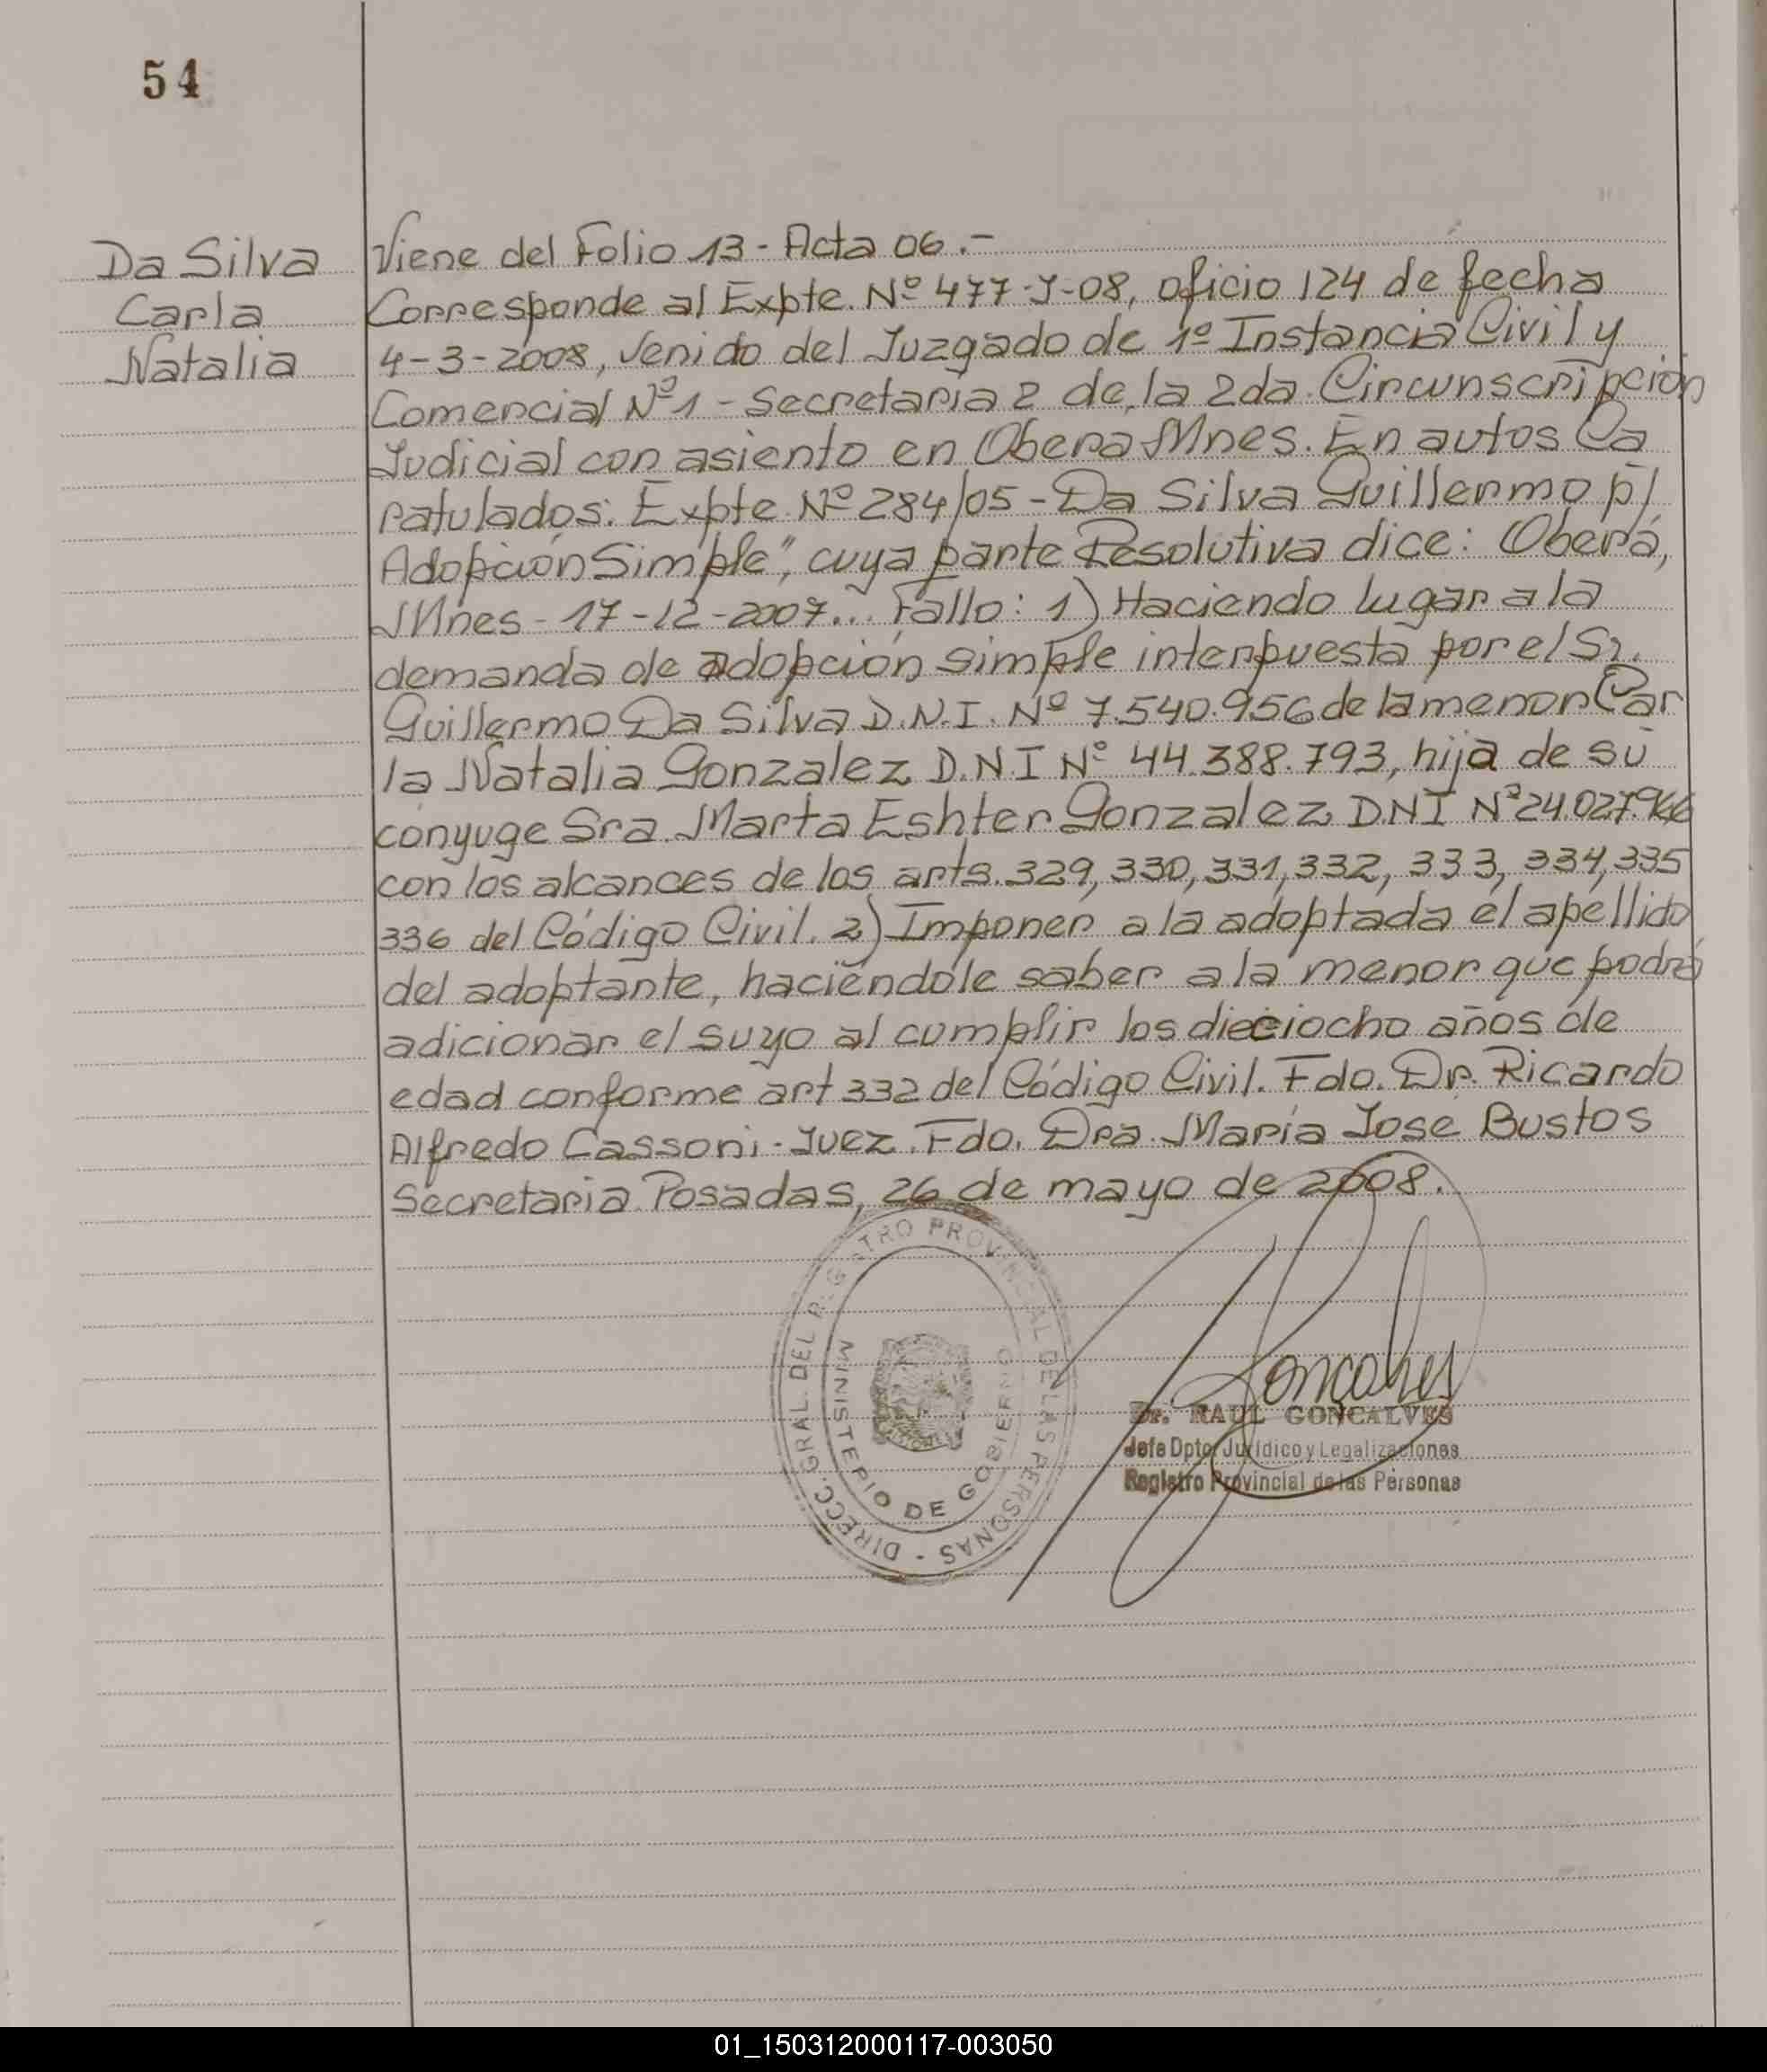 54
Da Silva
Carla
Natalia
Viene del Folio 13 - Acta 06.-
Corresponde al Expte. Nº 477-J-08, oficio 124 de fecha
4-3-2008, venido del Juzgado de 1º Instancia Civil y
Comercial Nº 1 - Secretaría 2 de la 2da. Circunscripción
Judicial con asiento en Obera Mnes. En autos Ca
ratulados: Expte. Nº 284/05 - Da Silva Guillermo p/
Adopción Simple", cuya parte Resolutiva dice: Oberá,
Mnes - 17-12-2007... Fallo: 1) Haciendo lugar a la
demanda de adopción simple interpuesta por el Sr.
Guillermo Da Silva D.N.I. Nº 7.540.956 de la menor Car
la Natalia Gonzalez D.N.I Nº 44.388.793, hija de su
conyuge Sra. Marta Eshter Gonzalez DNI Nº 24.027.966
con los alcances de los arts. 329, 330, 331, 332, 333, 334, 335
336 del Código Civil. 2) Imponer a la adoptada el apellido
del adoptante, haciéndole saber a la menor que podrá
adicionar el suyo al cumplir los dieciocho años de
edad conforme art 332 del Código Civil. Fdo. Dr. Ricardo
Alfredo Cassoni - Juez. Fdo. Dra. María José Bustos
Secretaria. Posadas, 26 de mayo de 2008.
DIRECC. GRAL. DEL REGISTRO PROVINCIAL DE LAS PERSONAS -
MINISTERIO DE GOBIERNO
MISIONES
Goncalves
Dr. RAUL GONCALVES
Jefe Dpto. Jurídico y Legalizaciones
Registro Provincial de las Personas
01_150312000117-003050